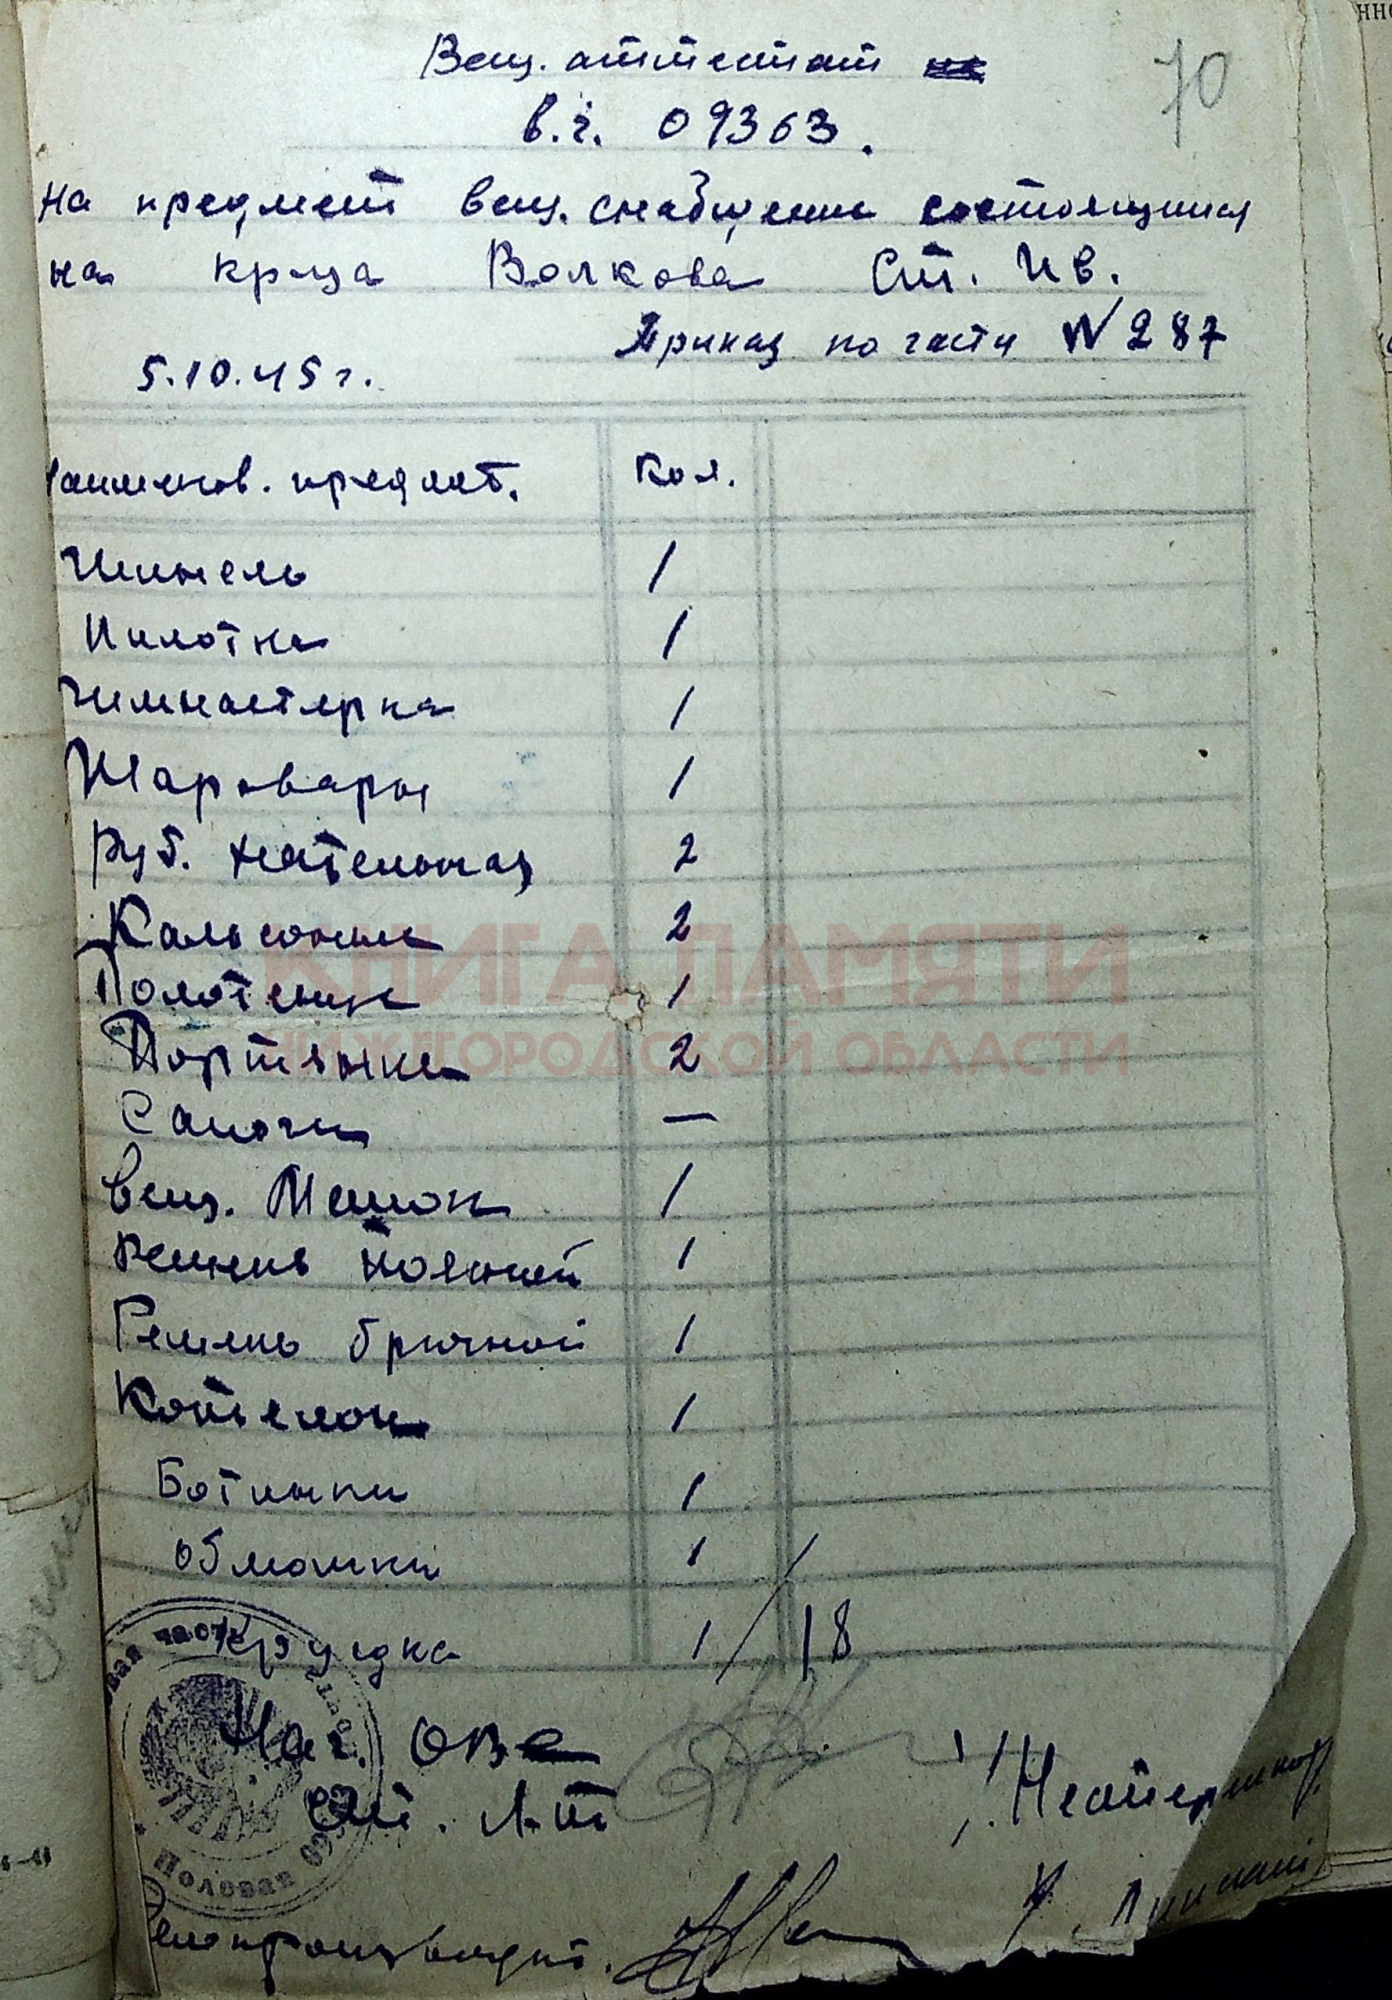 70
Вещ. аттестат
в.ч. 09363.
На предмет вещ. снабжение состоящших
на кр-ца Волкова Ст. Ив.
Приказ по части N 287
5.10.45 г.
Наименов. предмет. Кол.
Шинель 1
Пилотка 1
Гимнастерка 1
Шаровары 1
Руб. нательная 2
Кальсоны 2
КНИГА ПАМЯТИ
Полотенце 1
Портянки 2
НИЖЕГОРОДСКОЙ ОБЛАСТИ
Сапоги —
Вещ. Мешок 1
Ремень поясной 1
Ремень брючной 1
Котелок 1
Ботинки 1
Обмотки 1
Кружка 1 / 18
часть
Полевая
Нач. ОВС
Ст. л-т
Делопроизводит.